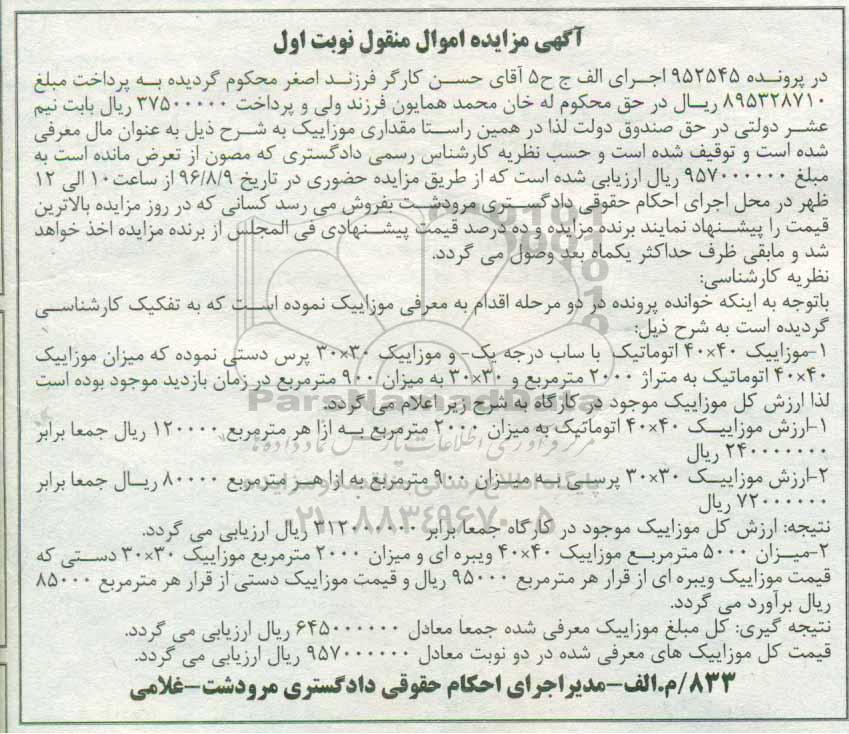 آگهی مزایده اموال منقول نوبت اول
در پرونده ۹۵۲۵۴۵ اجرای الف ج ح۵ آقای حسن کارگر فرزند اصغر محکوم گردیده به پرداخت مبلغ
۸۹۵۳۲۸۷۱۰ ریال در حق محکوم له خان محمد همایون فرزند ولی و پرداخت ۳۷۵۰۰۰۰۰ ریال بابت نیم
عشر دولتی در حق صندوق دولت لذا در همین راستا مقداری موزاییک به شرح ذیل به عنوان مال معرفی
شده است و توقیف شده است و حسب نظریه کارشناس رسمی دادگستری که مصون از تعرض مانده است به
مبلغ ۹۵۷۰۰۰۰۰۰ ریال ارزیابی شده است که از طریق مزایده حضوری در تاریخ ۹۶/۸/۹ از ساعت۱۰ الی ۱۲
ظهر در محل اجرای احکام حقوقی دادگستری مرودشت بفروش می رسد کسانی که در روز مزایده بالاترین
قیمت را پیشنهاد نمایند برنده مزایده و ده درصد قیمت پیشنهادی فی المجلس از برنده مزایده اخذ خواهد
شد و مابقی ظرف حداکثر یکماه بعد وصول می گردد.
نظریه کارشناسی:
باتوجه به اینکه خوانده پرونده در دو مرحله اقدام به معرفی موزاییک نموده است که به تفکیک کارشناسی
گردیده است به شرح ذیل:
۱-موزاییک ۴۰×۴۰ اتوماتیک با ساب درجه یک- و موزاییک ۳۰×۳۰ پرس دستی نموده که میزان موزاییک
۴۰×۴۰ اتوماتیک به متراژ ۲۰۰۰ مترمربع و ۳۰×۳۰ به میزان ۹۰۰ مترمربع در زمان بازدید موجود بوده است
لذا ارزش کل موزاییک موجود در کارگاه به شرح زیر اعلام می گردد.
۱-ارزش موزاییک ۴۰×۴۰ اتوماتیک به میزان ۲۰۰۰ مترمربع به ازا هر مترمربع ۱۲۰۰۰۰ ریال جمعا برابر
۲۴۰۰۰۰۰۰۰ ریال
۲-ارزش موزاییک ۳۰×۳۰ پرسی به میزان ۹۰۰ مترمربع به ازا هر مترمربع ۸۰۰۰۰ ریال جمعا برابر
۷۲۰۰۰۰۰۰ ریال
نتیجه: ارزش کل موزاییک موجود در کارگاه جمعا برابر ۳۱۲۰۰۰۰۰۰ ریال ارزیابی می گردد.
۲-میزان ۵۰۰۰ مترمربع موزاییک ۴۰×۴۰ ویبره ای و میزان ۲۰۰۰ مترمربع موزاییک ۳۰×۳۰ دستی که
قیمت موزاییک ویبره ای از قرار هر مترمربع ۹۵۰۰۰ ریال و قیمت موزاییک دستی از قرار هر مترمربع ۸۵۰۰۰
ریال برآورد می گردد.
نتیجه گیری: کل مبلغ موزاییک معرفی شده جمعا معادل ۶۴۵۰۰۰۰۰۰ ریال ارزیابی می گردد.
قیمت کل موزاییک های معرفی شده در دو نوبت معادل ۹۵۷۰۰۰۰۰۰ ریال ارزیابی می گردد.
۸۳۳/م.الف-مدیراجرای احکام حقوقی دادگستری مرودشت-غلامی
ParsNamadData
مرکز فرآوری اطلاعات پارس نماد داده ها
۰۲۱-۸۸۳۴۹۶۷۰-۵